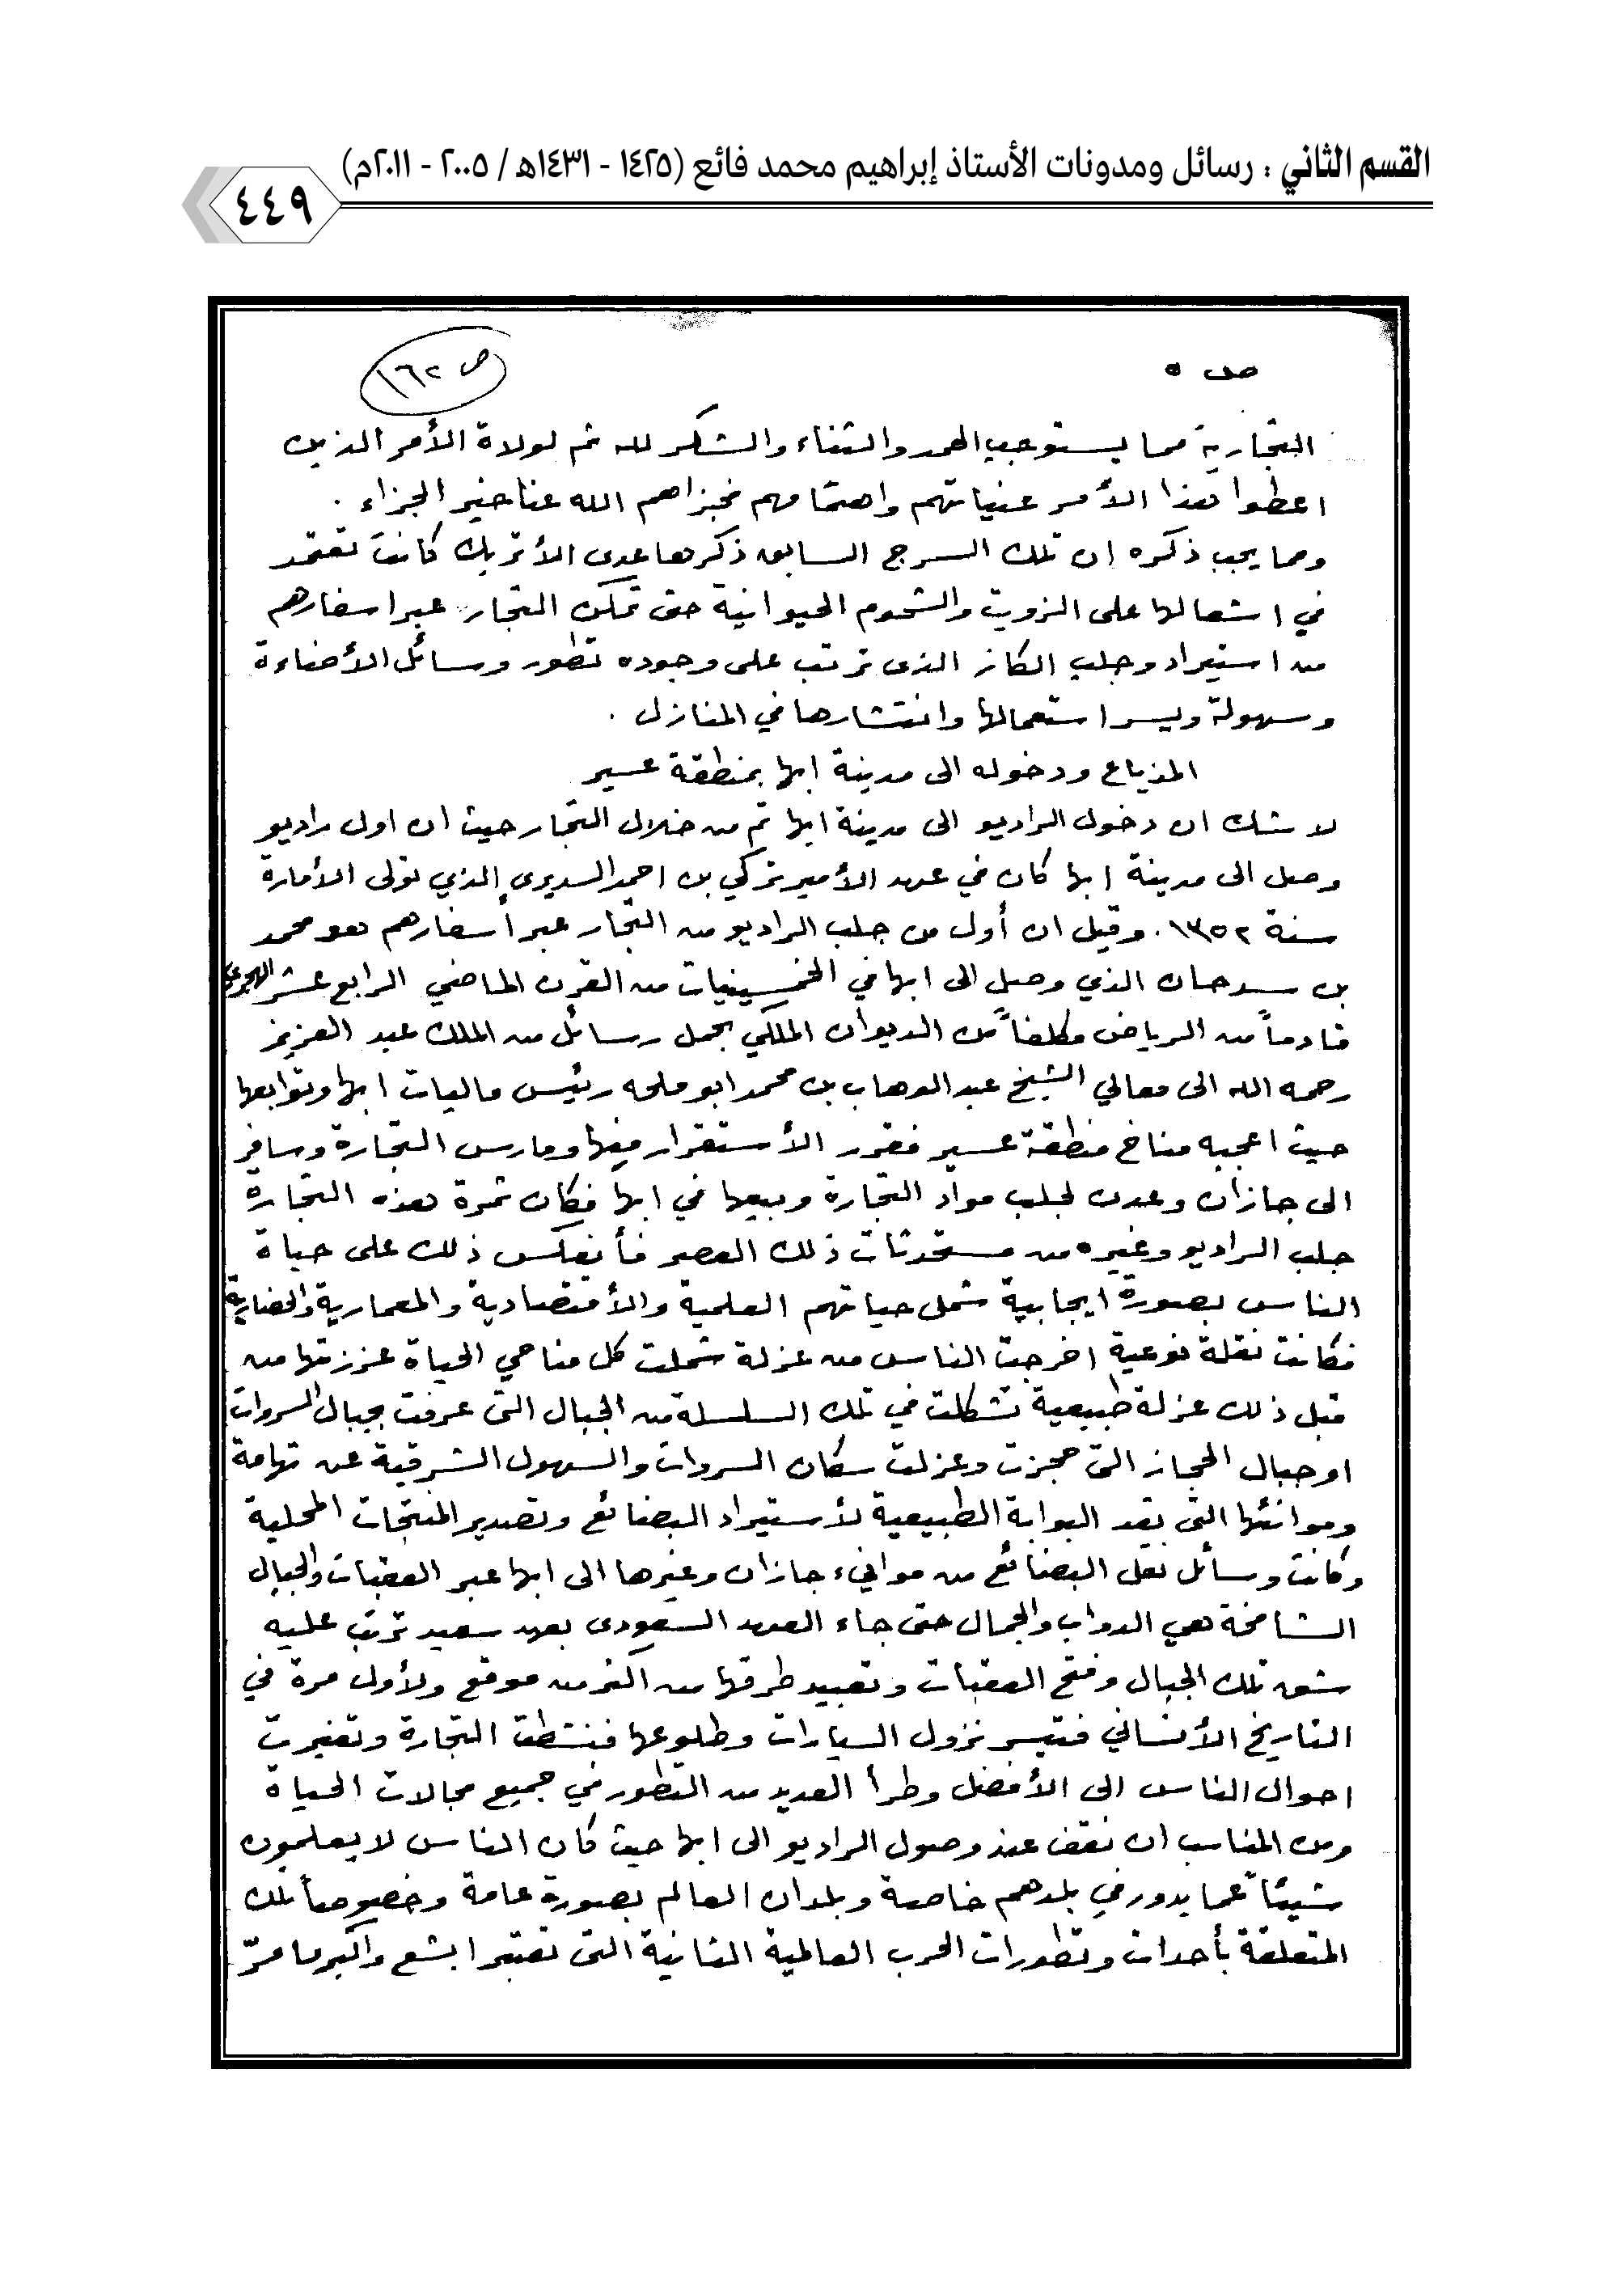 القسم الثاني : رسائل ومدونات الأستاذ إبراهيم محمد فائع (١٤٢٥ - ١٤٣١هـ / ٢٠٠٥ - ٢٠١١م)
٤٤٩
ص ٥
ص ١٦٢
التجارية مما يستوجب الحمد والثناء والشكر لله ثم لولاة الأمر الذين
اعطوا هذا الأمر عنياتهم واهتمامهم فجزاهم الله عنا خير الجزاء .
ومما يجب ذكره ان تلك السرج السابق ذكرها عدى الأتريك كانت تعتمد
في اشعالها على الزويت والشحوم الحيوانية حتى تمكن التجار عبر اسفارهم
من استيراد وجلب الكاز الذى ترتب على وجوده تطور وسائل الأضاءة
وسهولة ويسر استعمالها وانتشارها في المنازل .
المذياع ودخوله الى مدينة ابها بمنطقة عسير
لا شك ان دخول الراديو الى مدينة ابها تم من خلال التجار حيث ان اول راديو
وصل الى مدينة ابها كان في عهد الأمير تركي بن احمد السديرى الذي تولى الأمارة
سنة ١٣٥٢ . وقيل ان أول من جلب الراديو من التجار عبر أسفارهم هو محمد
بن سرحان الذي وصل الى ابها في الخمسينيات من القرن الماضي الرابع عشر الهجري
قادماً من الرياض مكلفاً من الديوان الملكي بحمل رسائل من الملك عبد العزيز
رحمه الله الى معالي الشيخ عبد الوهاب بن محمد ابو ملحه رئيس ماليات ابها وتوابعها
حيث اعجبه مناخ منطقة عسير فقرر الأستقرار فيها ومارس التجارة وسافر
الى جازان وعدن لجلب مواد التجارة وبيعها في ابها فكان ثمرة هذه التجارة
جلب الراديو وغيره من مستحدثات ذلك العصر فأنعكس ذلك على حياة
الناس بصورة ايجابية شمل حياتهم العلمية والأقتصادية والمعمارية والحضارية
فكانت نقلة نوعية اخرجت الناس من عزلة شملت كل مناحي الحياة عززتها من
قبل ذلك عزلة طبيعية تشكلت في تلك السلسلة من الجبال التى عرفت بجبال السروات
او جبال الحجاز التى حجزت وعزلت سكان السروات والسهول الشرقية عن تهامة
وموانئها التى تعد البوابة الطبيعية لأستيراد البضائع وتصدير المنتجات المحلية
وكانت وسائل نقل البضائع من موانيء جازان وغيرها الى ابها عبر العقبات والجبال
الشامخة هي الدواب والجمال حتى جاء العهد السعودى بعهد سعيد ترتب عليه
شق تلك الجبال وفتح العقبات وتعبيد طرقها من اكثر من موقع ولأول مرة في
التاريخ الأنساني فتيسر نزول السيارات وطلوعها فنشطت التجارة وتغيرت
احوال الناس الى الأفضل وطرأ العديد من التطور في جميع مجالات الحياة
ومن المناسب ان نقف عند وصول الراديو الى ابها حيث كان الناس لا يعلمون
شيئاً عما يدور في بلدهم خاصة وبلدان العالم بصورة عامة وخصوصاً تلك
المتعلقة بأحداث وتطورات الحرب العالمية الثانية التى تعتبر ابشع واكبر ما مرّ